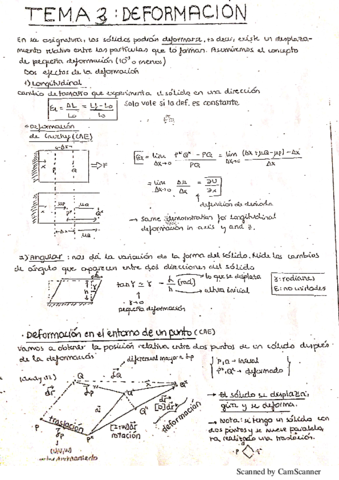 TEMA 3: DEFORMACIÓN
En la asignatura, los sólidos podrán deformarse, es decir, existe un desplaza-
miento relativo entre las partículas que lo forman. Asumiremos el concepto
de pequeña deformación (10⁻³ o menos)
Dos efectos de la deformación
1) Longitudinal
cambio de tamaño que experimenta el sólido en una dirección
εₓ = ΔL/L₀ = (Lf - L₀)/L₀ Solo vale si la def. es constante.
Deformación
de Cauchy (CAE)
εₓ = lim Δx→0 (P*Q* - PQ)/PQ = lim Δx→0
= lim Δx→0 Δu/Δx = ∂u/∂x
definición de derivada
→ Same demonstration for longitudinal
deformation in axis y and z.
2) Angular: nos dá la variación de la forma del sólido. Mide los cambios
de ángulo que aparecen entre dos direcciones del sólido
lo que se desplaza
tan γ ≈ γ (rad)
altura inicial
γ: radianes
ε: no unidades
γ→0
pequeña deformación
· Deformación en el entorno de un punto (CAE)
Vamos a obtener la posición relativa entre dos puntos de un sólido después
de la deformación.
P, Q → inicial
P*, Q* → deformado
→ El sólido se desplaza,
gira y se deforma.
→ Nota: si tengo un sólido con
dos puntos y se mueve paralela,
ha realizado una traslación.
traslación
rotación
deformación
Scanned by CamScanner